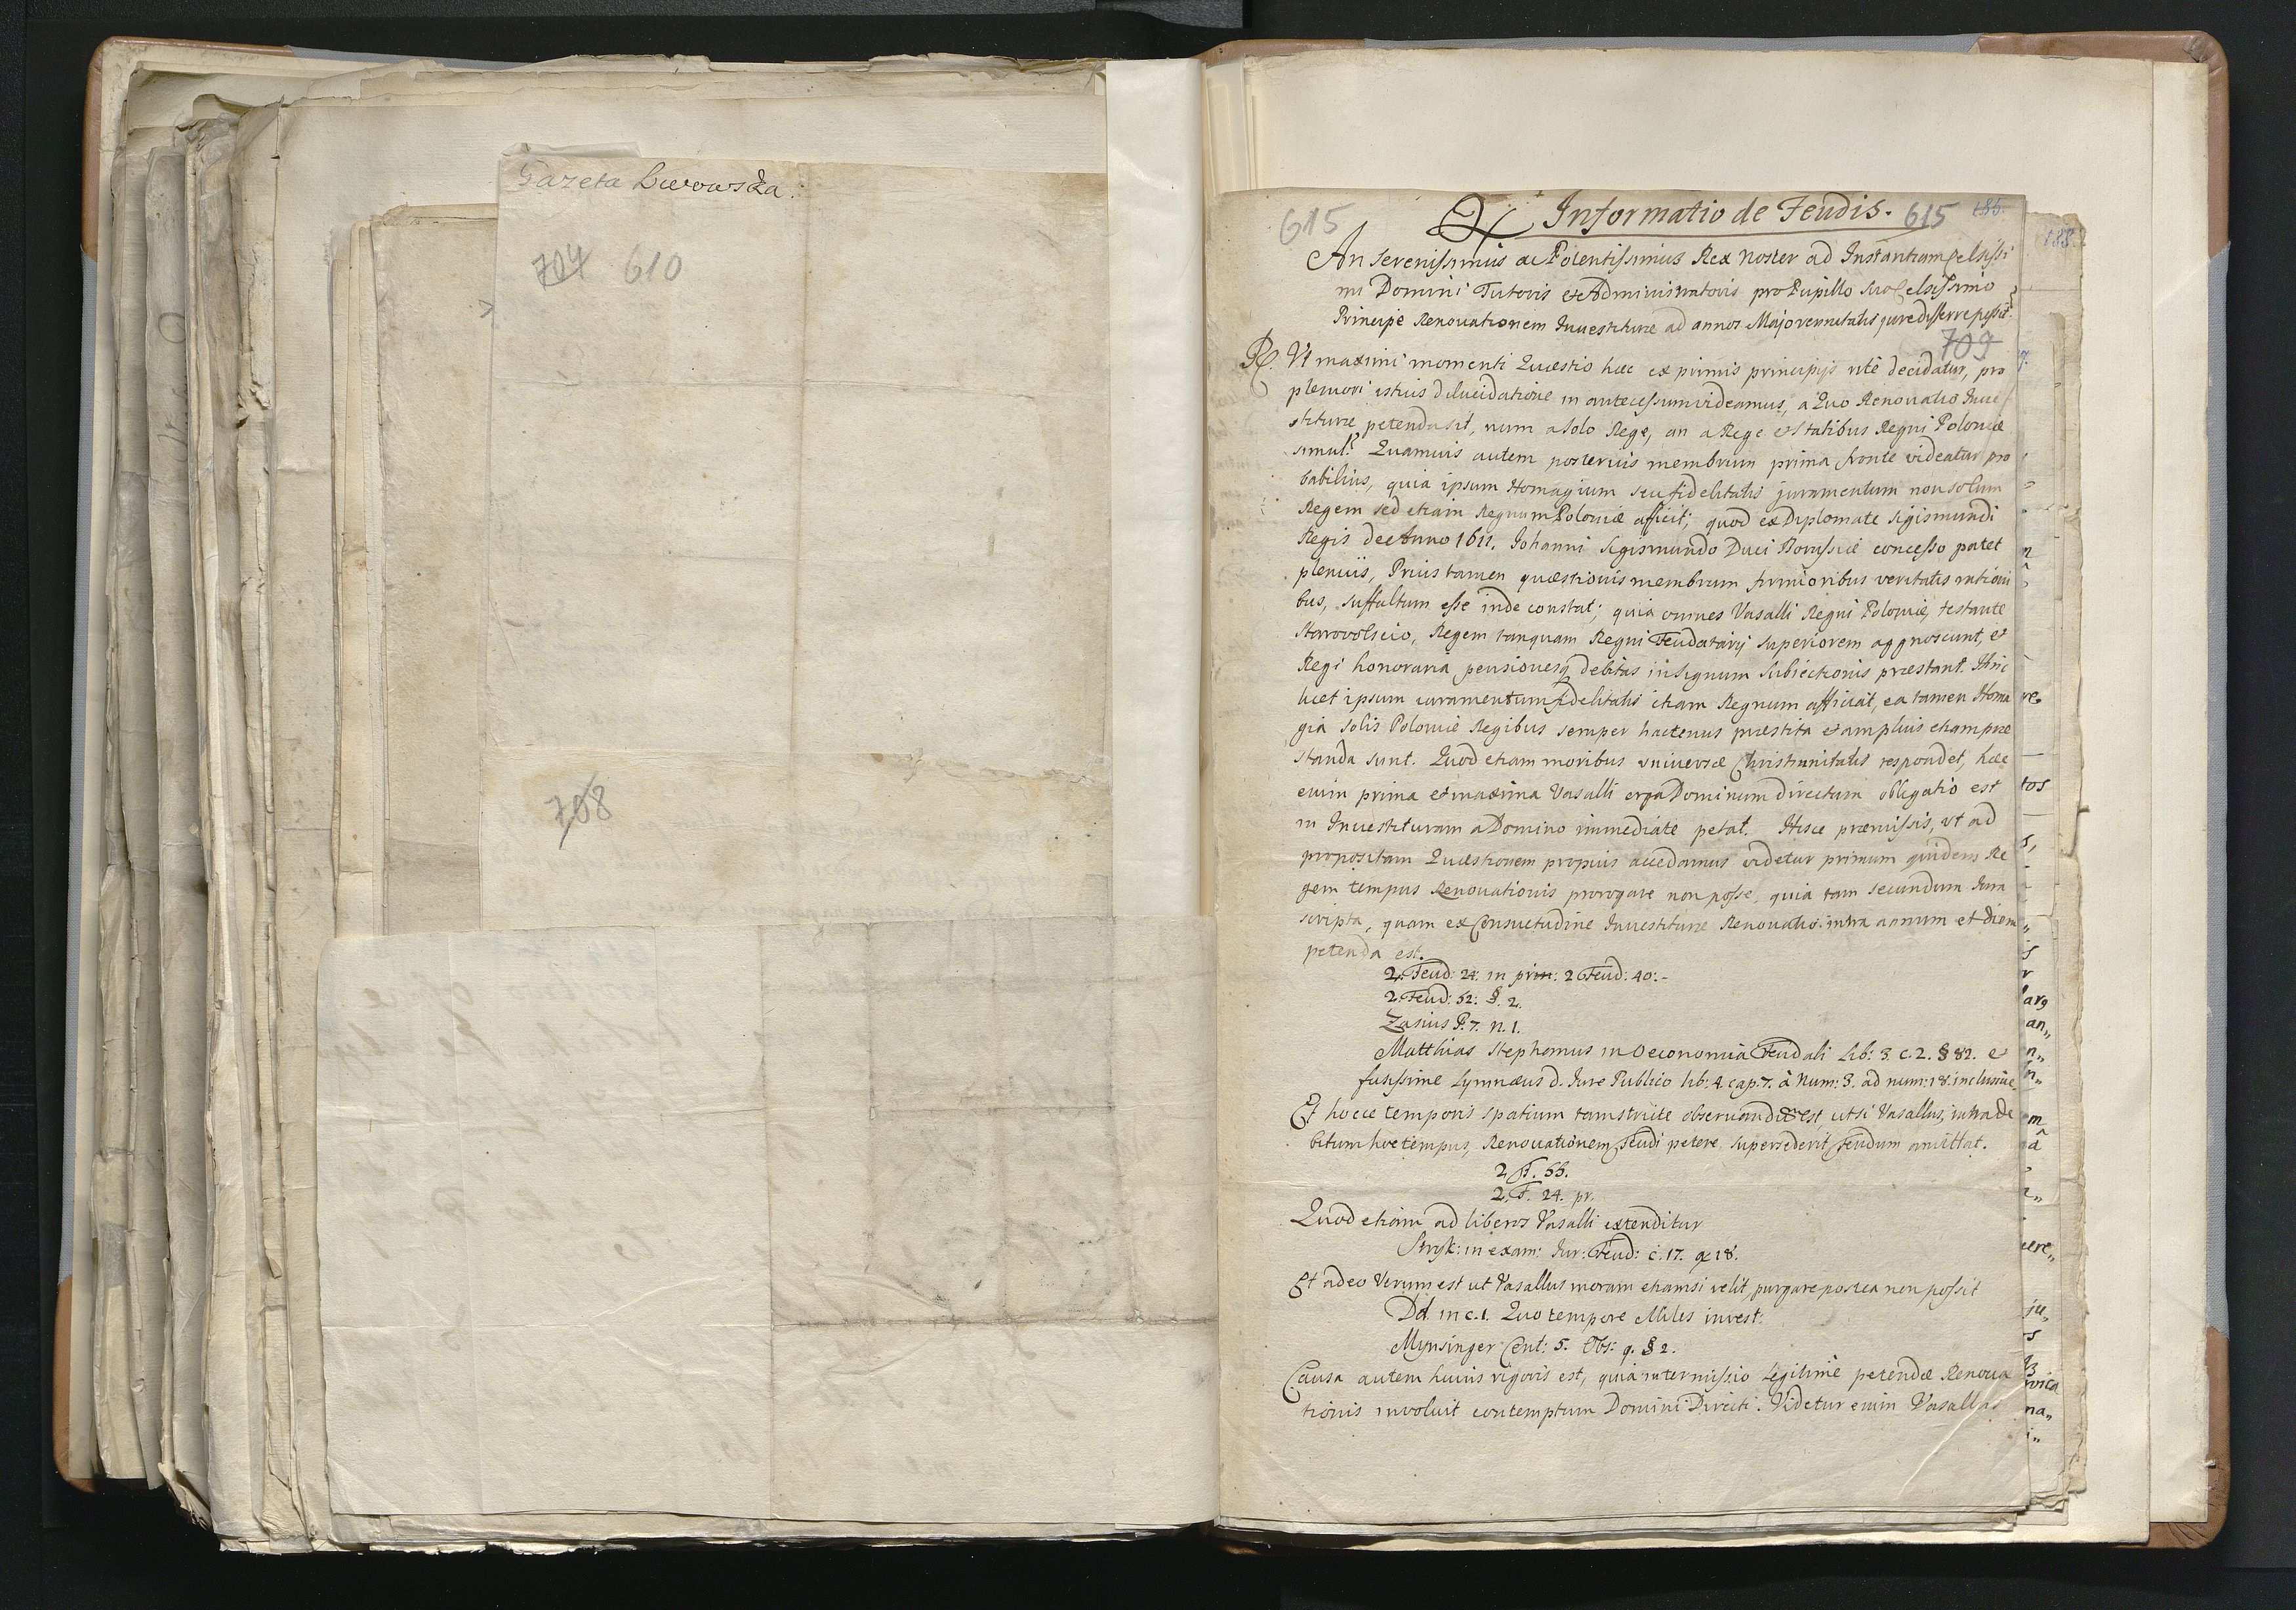 Gazeta Lwowska.
704 610
708
615 Informatio de Feudis. 615 186.
188.
An Serenissimus ac Potentissimus Rex Noster ad Instantiam Celsissi
mi Domini Tutoris et Administratoris pro Pupillo suo Celsissimo
Principe Renovationem Investituræ ad annos Majorennitatis jure differre possit?
709
R. Vt maximi momenti Quæstio hæc ex primis principijs rite decidatur, pro
pleniori istius dilucidatione in antecessum videamus, a Quo Renovatio Inve
stituræ petenda sit, num a solo Rege, an a Rege et Statibus Regni Poloniæ
simul? Quamvis autem posterius membrum prima fronte videatur pro
babilius, quia ipsum Homagium seu fidelitatis juramentum non solum
Regem sed etiam Regnum Poloniæ afficit; quod ex Diplomate Sigismundi
Regis de Anno 1611. Johanni Sigismundo Duci Borussiæ concesso patet
plenius, Prius tamen quæstionis membrum firmioribus veritatis rationi
bus, suffultum esse inde constat; quia omnes Vasalli Regni Poloniæ, testante
Starovolscio, Regem tanquam Regni Feudatarij superiorem aggnoscunt, et
Regi honoraria pensionesq debitas in signum subiectionis præstant. Hinc
licet ipsum iuramentum fidelitatis etiam Regnum afficiat, ea tamen Homa
gia solis Poloniæ Regibus semper hactenus præstita et amplius etiam præ
standa sunt. Quod etiam moribus universæ Christianitatis respondet, hæc
enim prima et maxima Vasalli erga Dominum directum obligatio est
in Investituram a Domino immediate petat. Hisce præmissis, vt ad
propositam Quæstionem propius accedamus videtur primum quidem Re
gem tempus Renovationis prorogare non posse, quia tam secundum Jura
scripta, quam ex Consuetudine Investituræ Renovatio intra annum et diem
petenda est.
2. Feud: 24: in prin: 2 Feud: 40:-
2. Feud: 52: § 2.
Zasius P. 7. n. 1.
Matthias Stephanus in Oeconomia Feudali Lib: 3. c. 2. § 82. et
fusissime Lymnæus d. Jure Publico lib: 4. cap. 7. à Num: 3. ad num: 18. inclusive
Et hocce temporis spatium tam stricte observandum est, ut si Vasallus, intra de
bitum hoc tempus, Renovationem Feudi petere supersederit Feudum amittat.
2. F. 55.
2. F. 24. pr.
Quod etiam ad liberos Vasalli extenditur
Stryk: in exam: Jur: Feud: c. 17. q 18.
Et adeo Verum est ut Vasallus moram etiamsi velit, purgare postea non possit
Dd. in c. 1. Quo tempore Miles invest:
Mynsinger Cent: 5. Obs: 9. § 2.
Causa autem huius rigoris est, quia intermissio legitimè petendæ Renova
tionis involuit contemptum Domini Directi. Videtur enim Vasallus